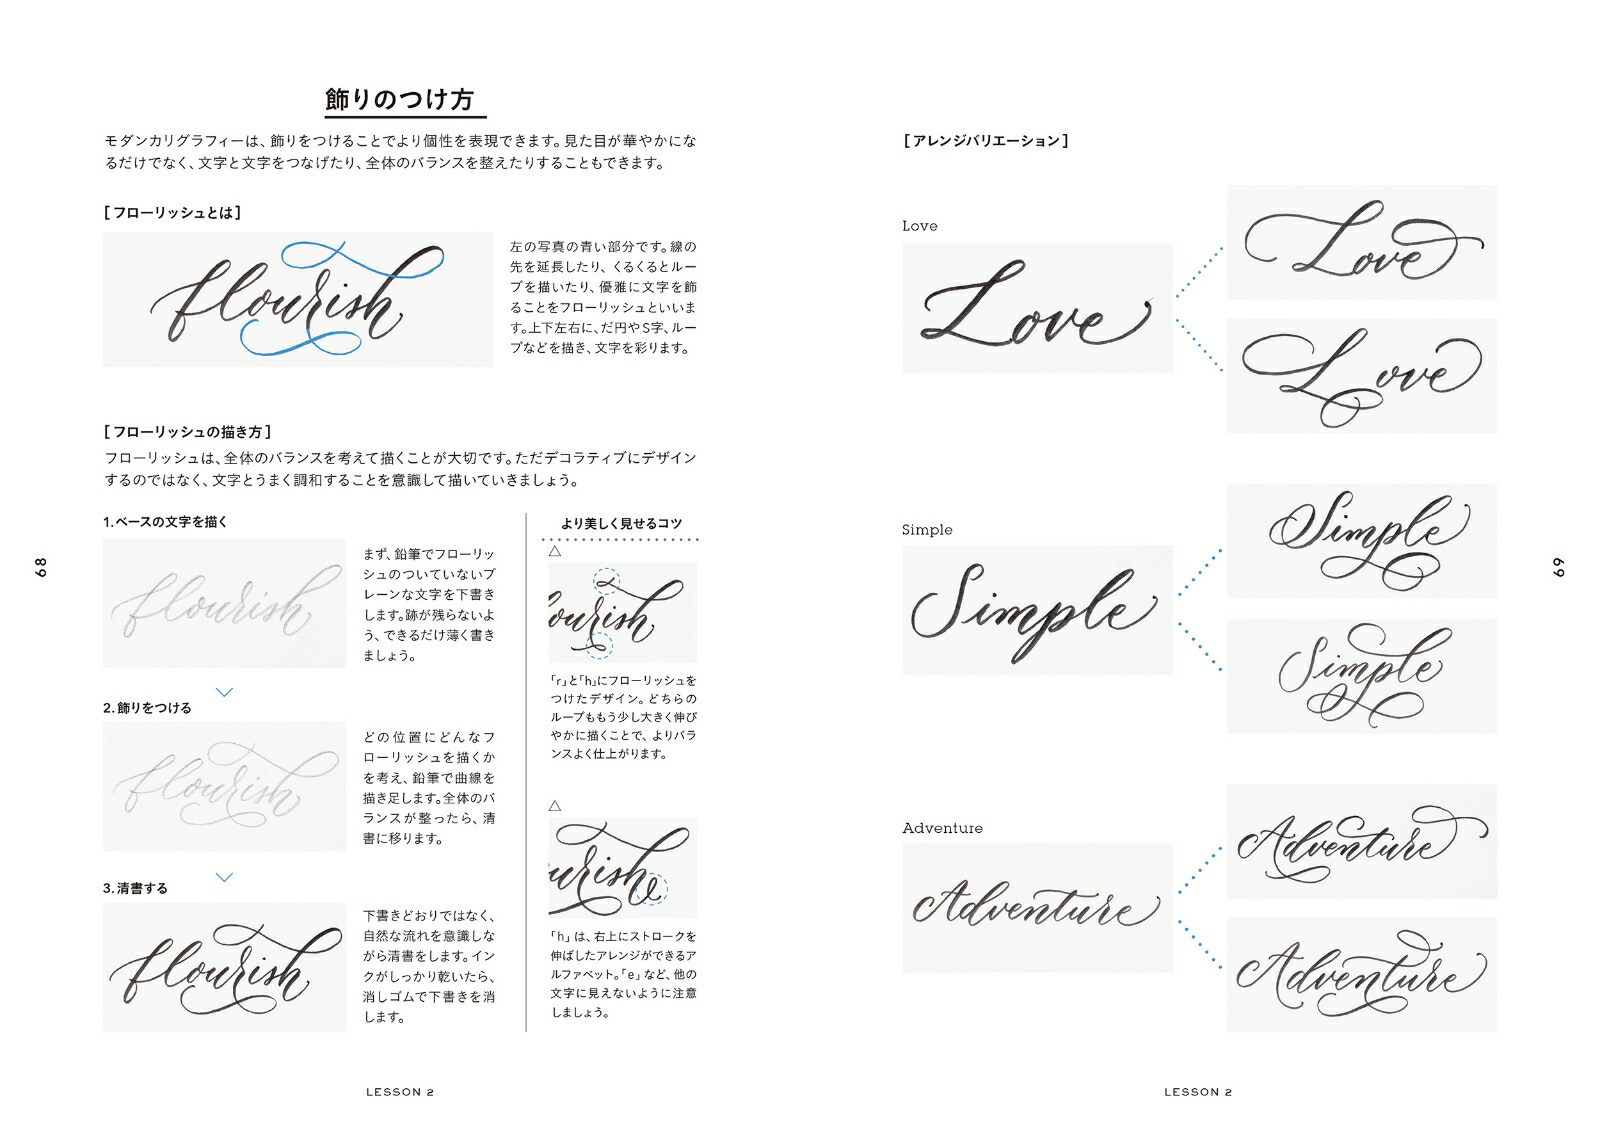 飾りのつけ方
モダンカリグラフィーは、飾りをつけることでより個性を表現できます。見た目が華やかにな
るだけでなく、文字と文字をつなげたり、全体のバランスを整えたりすることもできます。
[フローリッシュとは]
flourish
左の写真の青い部分です。線の
先を延長したり、くるくるとルー
プを描いたり、優雅に文字を飾
ることをフローリッシュといいま
す。上下左右に、だ円やS字、ルー
プなどを描き、文字を彩ります。
[フローリッシュの描き方]
フローリッシュは、全体のバランスを考えて描くことが大切です。ただデコラティブにデザイン
するのではなく、文字とうまく調和することを意識して描いていきましょう。
1.ベースの文字を描く
flourish
まず、鉛筆でフローリッ
シュのついていないプ
レーンな文字を下書き
します。跡が残らないよ
う、できるだけ薄く書き
ましょう。
2.飾りをつける
flourish
どの位置にどんなフ
ローリッシュを描くか
を考え、鉛筆で曲線を
描き足します。全体のバ
ランスが整ったら、清
書に移ります。
3.清書する
flourish
下書きどおりではなく、
自然な流れを意識しな
がら清書をします。イン
クがしっかり乾いたら、
消しゴムで下書きを消
します。
より美しく見せるコツ
△
ourish
「r」と「h」にフローリッシュを
つけたデザイン。どちらの
ループももう少し大きく伸び
やかに描くことで、よりバラ
ンスよく仕上がります。
△
urishe
「h」は、右上にストロークを
伸ばしたアレンジができるア
ルファベット。「e」など、他の
文字に見えないように注意
しましょう。
68
LESSON 2
[アレンジバリエーション]
Love
Love
Love
Love
Simple
Simple
Simple
Simple
Adventure
Adventure
Adventure
Adventure
69
LESSON 2